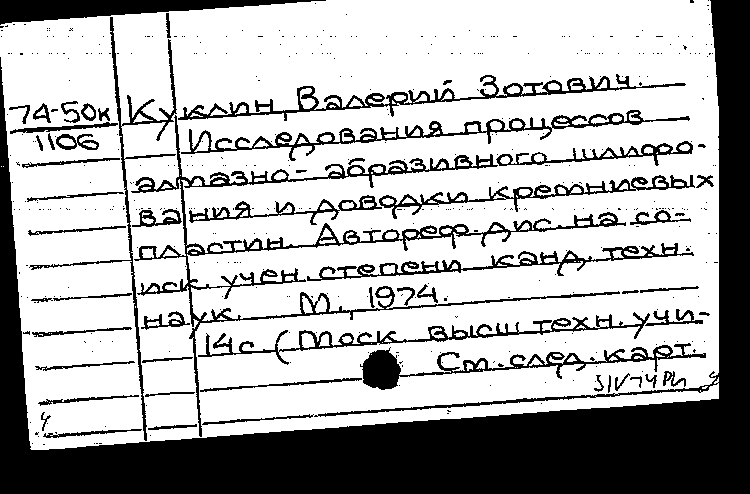 74-50к
1106
Куклин, Валерий Зотович.
Исследования процессов
алмазно-абразивного шлифо-
вания и доводки кремниевых
пластин. Автореф. дис. на со-
иск. учен. степени канд. техн.
наук. М., 1974.
14с (Моск высш техн. учи-
См. след. карт.